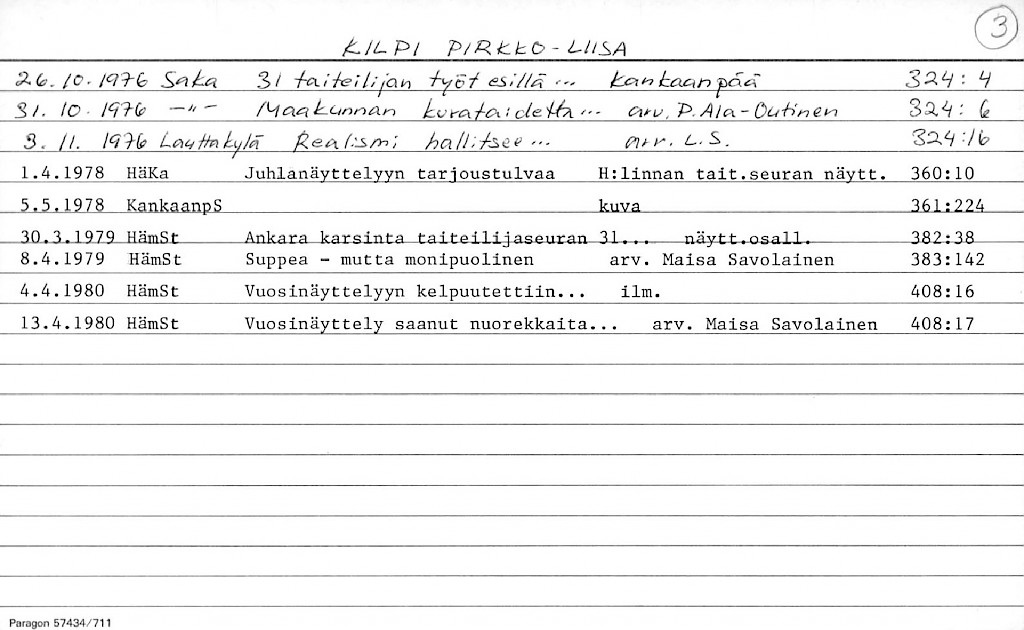 3
KILPI PIRKKO-LIISA
26.10.1976 SaKa 31 taiteilijan työt esillä... Kankaanpää 324:4
31.10.1976 -"- Maakunnan kuvataidetta... arv. P. Ala-Outinen 324:6
3.11.1976 Lauttakylä Realismi hallitsee... arv. L.S. 324:16
1.4.1978 HäKa Juhlanäyttelyyn tarjoustulvaa H:linnan tait.seuran näytt. 360:10
5.5.1978 KankaanpS kuva 361:224
30.3.1979 HämSt Ankara karsinta taiteilijaseuran 31... näytt.osall. 382:38
8.4.1979 HämSt Suppea - mutta monipuolinen arv. Maisa Savolainen 383:142
4.4.1980 HämSt Vuosinäyttelyyn kelpuutettiin... ilm. 408:16
13.4.1980 HämSt Vuosinäyttely saanut nuorekkaita... arv. Maisa Savolainen 408:17
Paragon 57434/711